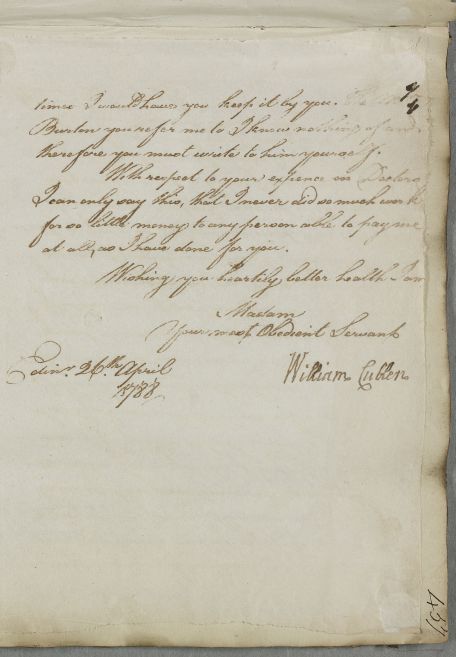 times I would have you keep it by you. The
Burton you refer me to I know nothing of and
therefore you must write to him yourself.
With respect to your expence on Doctors
I can only say this, that I never did so much work
for so little money to any person able to pay me
at all, as I have done for you.
Wishing you heartily better health I am
Madam
Your most Obedient Servant
Edinr. 26th. April
1788
William Cullen